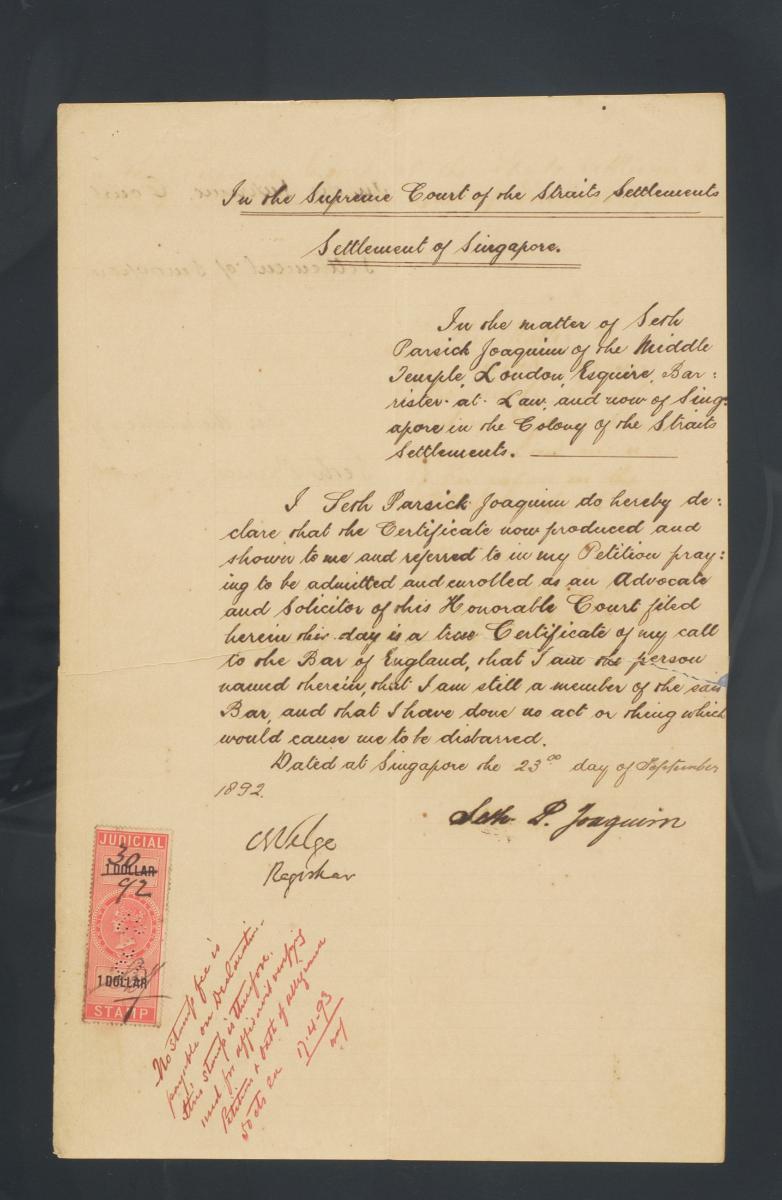 In the Supreme Court of the Straits Settlements
Settlement of Singapore.
In the matter of Seth
Parsick Joaquim of the Middle
Temple, London, Esquire, Bar:
rister-at-Law, and now of Sing:
apore in the Colony of the Straits
Settlements.
I Seth Parsick Joaquim do hereby de:
clare that the Certificate now produced and
shown to me and referred to in my Petition pray:
ing to be admitted and enrolled as an Advocate
and Solicitor of this Honorable Court filed
herein this day is a true Certificate of my call
to the Bar of England, that I am the person
named therein, that I am still a member of the said
Bar, and that I have done no act or thing which
would cause me to be disbarred.
Dated at Singapore the 23rd day of September
1892.
Seth P. Joaquim
Registrar
JUDICIAL
30
1 DOLLAR
92
1 DOLLAR
STAMP
No stamp fee is
payable on Declaration.
this stamp is therefore
used for affidavit verifying
Petition & oath of allegiance
50 cts ea 17-4-93